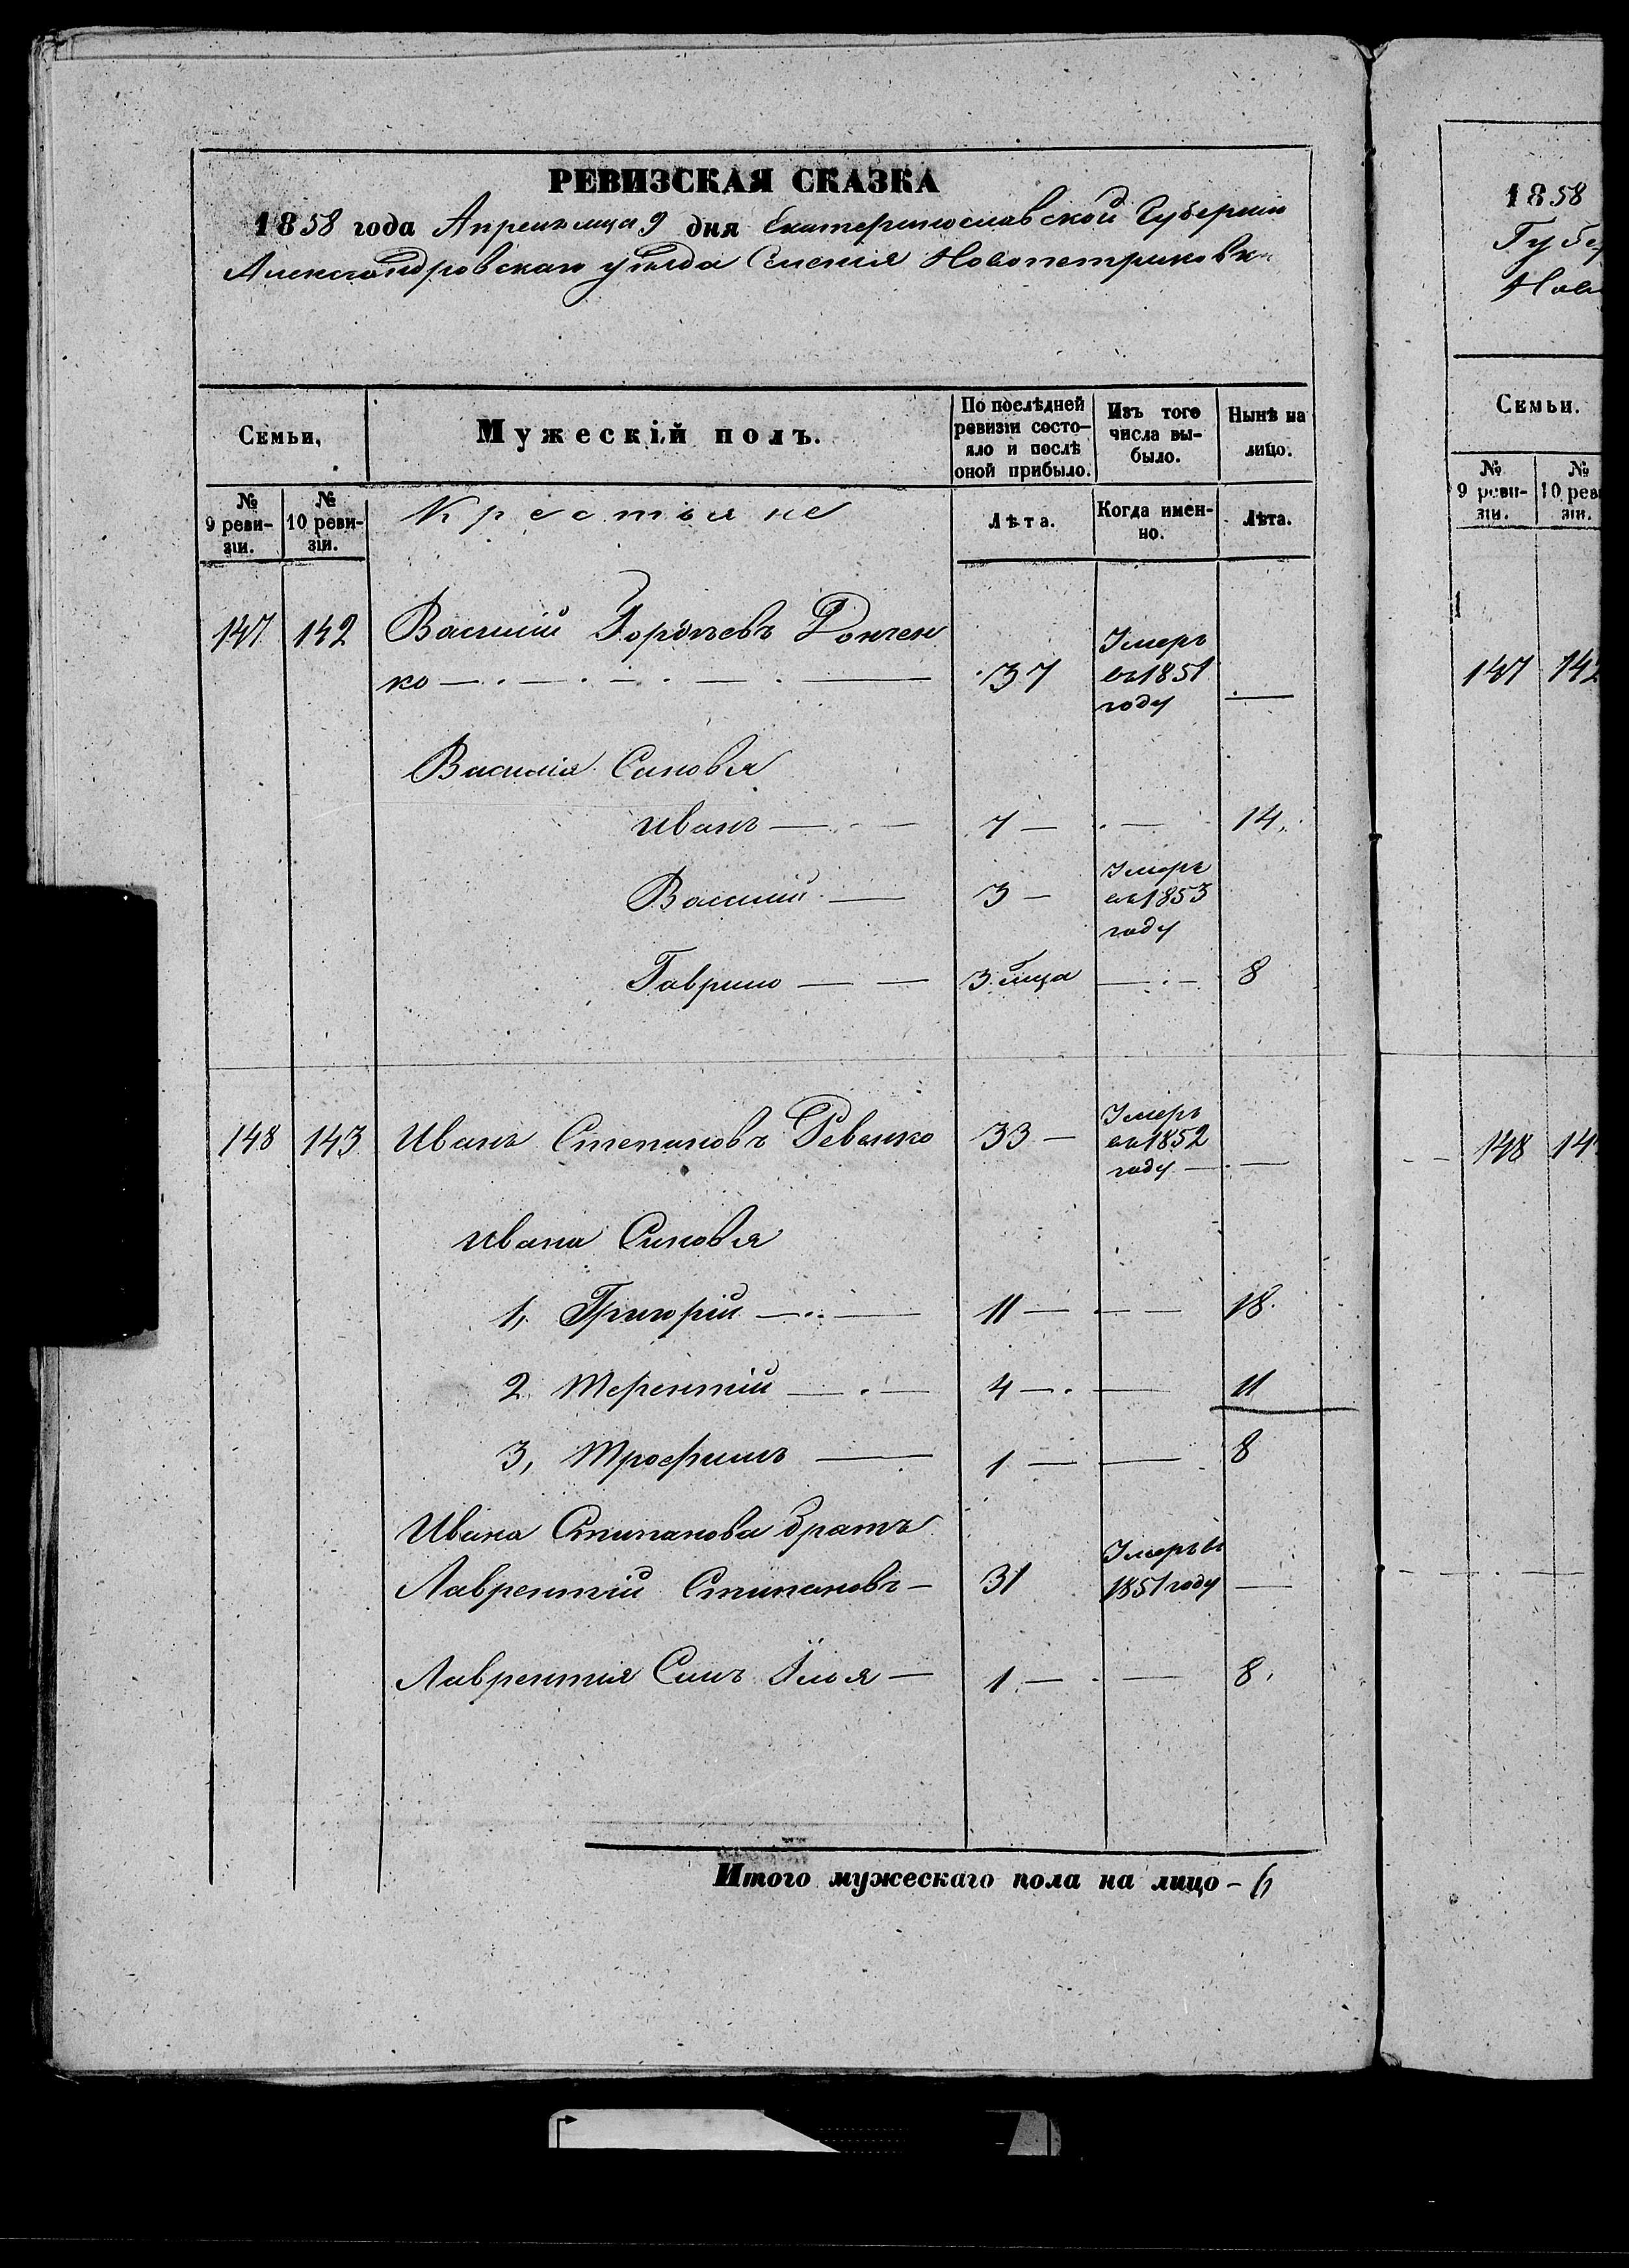 РЕВИЗСКАЯ СКАЗКА
1858 года Апреля мца 9 дня Екатеринославской Губернии
Александровскаго уѣзда Селенія Новопетриковки
Семьи,
Мужескій полъ.
По послѣдней ревизіи состо-
яло и послѣ
оной прибыло.
Изъ того
числа вы-
было.
Нынѣ на
лицо.
№
9 реви-
зіи.
№
10 реви-
зіи.
Крестьяне
Лѣта.
Когда имен-
но.
Лѣта.
147 142 Василий Донген
ко — 37 Умеръ
въ 1851
году —
Василия Сановья
Иванъ — 7 — — 14
Василий — 3 — Умеръ
въ 1853
году
Гаврило — 3 мца — 8
148 143 Иванъ Степановъ Ревенко 33 — Умеръ
въ 1852
году — —
Ивана Синовья
1, Григорій — 11 — — 18
2 Терентий — 4 — — 11
3, Трофимъ — 1 — — 8
Ивана Стипанова братъ
Лаврентий Стипановъ — 31 Умеръ въ
1851 году —
Лаврентия Синъ Илья — 1 — — 8
Итого мужескаго пола на лицо — 6
1858
Губер
Ново
Семьи.
№
9 реви-
зіи.
№
10 реви
зіи.
147 142
148 14